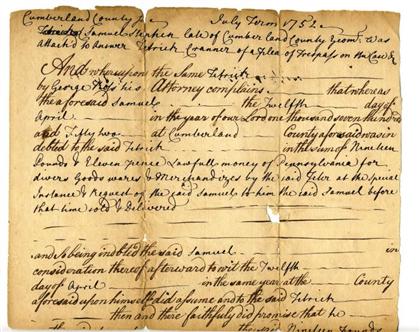 Cumberland County ss July Term 1752
Samuel Stephen late of Cumberland County Yeom: was
attach'd to answer Petrick Cranner of a Plea of Trespass on the Case &
And whereupon the Same Petrick
by George Ross his Attorney complains that whereas
the aforesaid Samuel the Twelfth day of
April in the year of our Lord one thousand seven hundred
and Fifty two at Cumberland County aforesaid was in
debted to the said Petrick in the sum of Nineteen
Pounds & Eleven pence Lawfull money of Pennsylvania for
divers Goods wares & Merchandizes by the said Petr at the Special
Instance & Request of the said Samuel to him the said Samuel before
that time sold & delivered
and so being indebted the said Samuel in
consideration thereof afterward to wit the Twelfth
day of April in the same year at the County
aforesaid upon himself did assume and to the said Petrick
then and there faithfully did promise that he
the said Nineteen Pounds